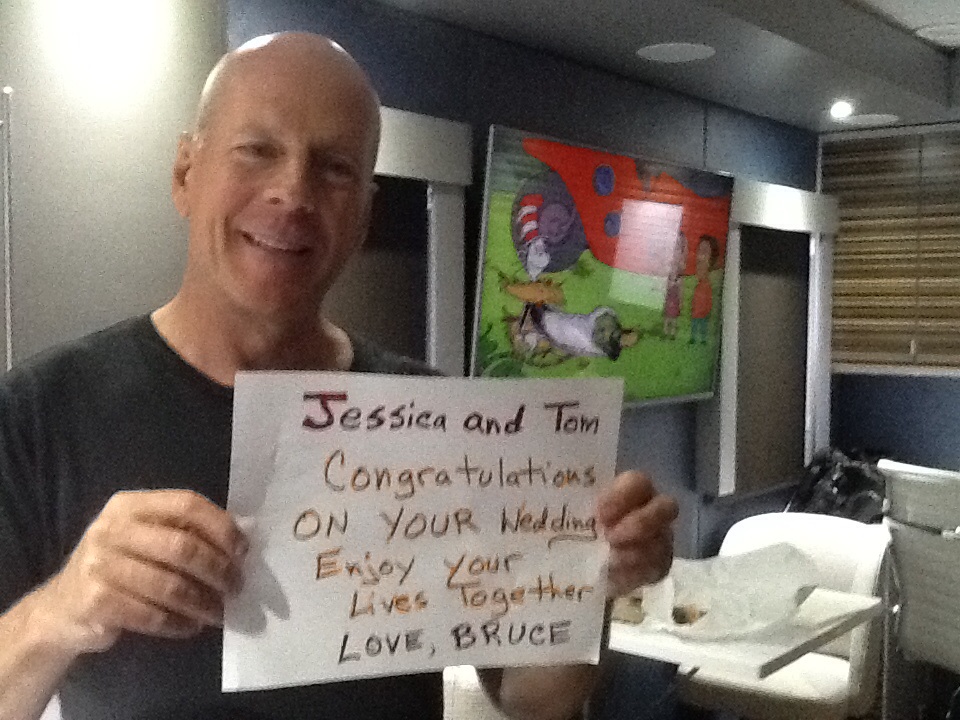 Jessica and Tom
Congratulations
ON YOUR Wedding
Enjoy your
Lives Together
LOVE, BRUCE